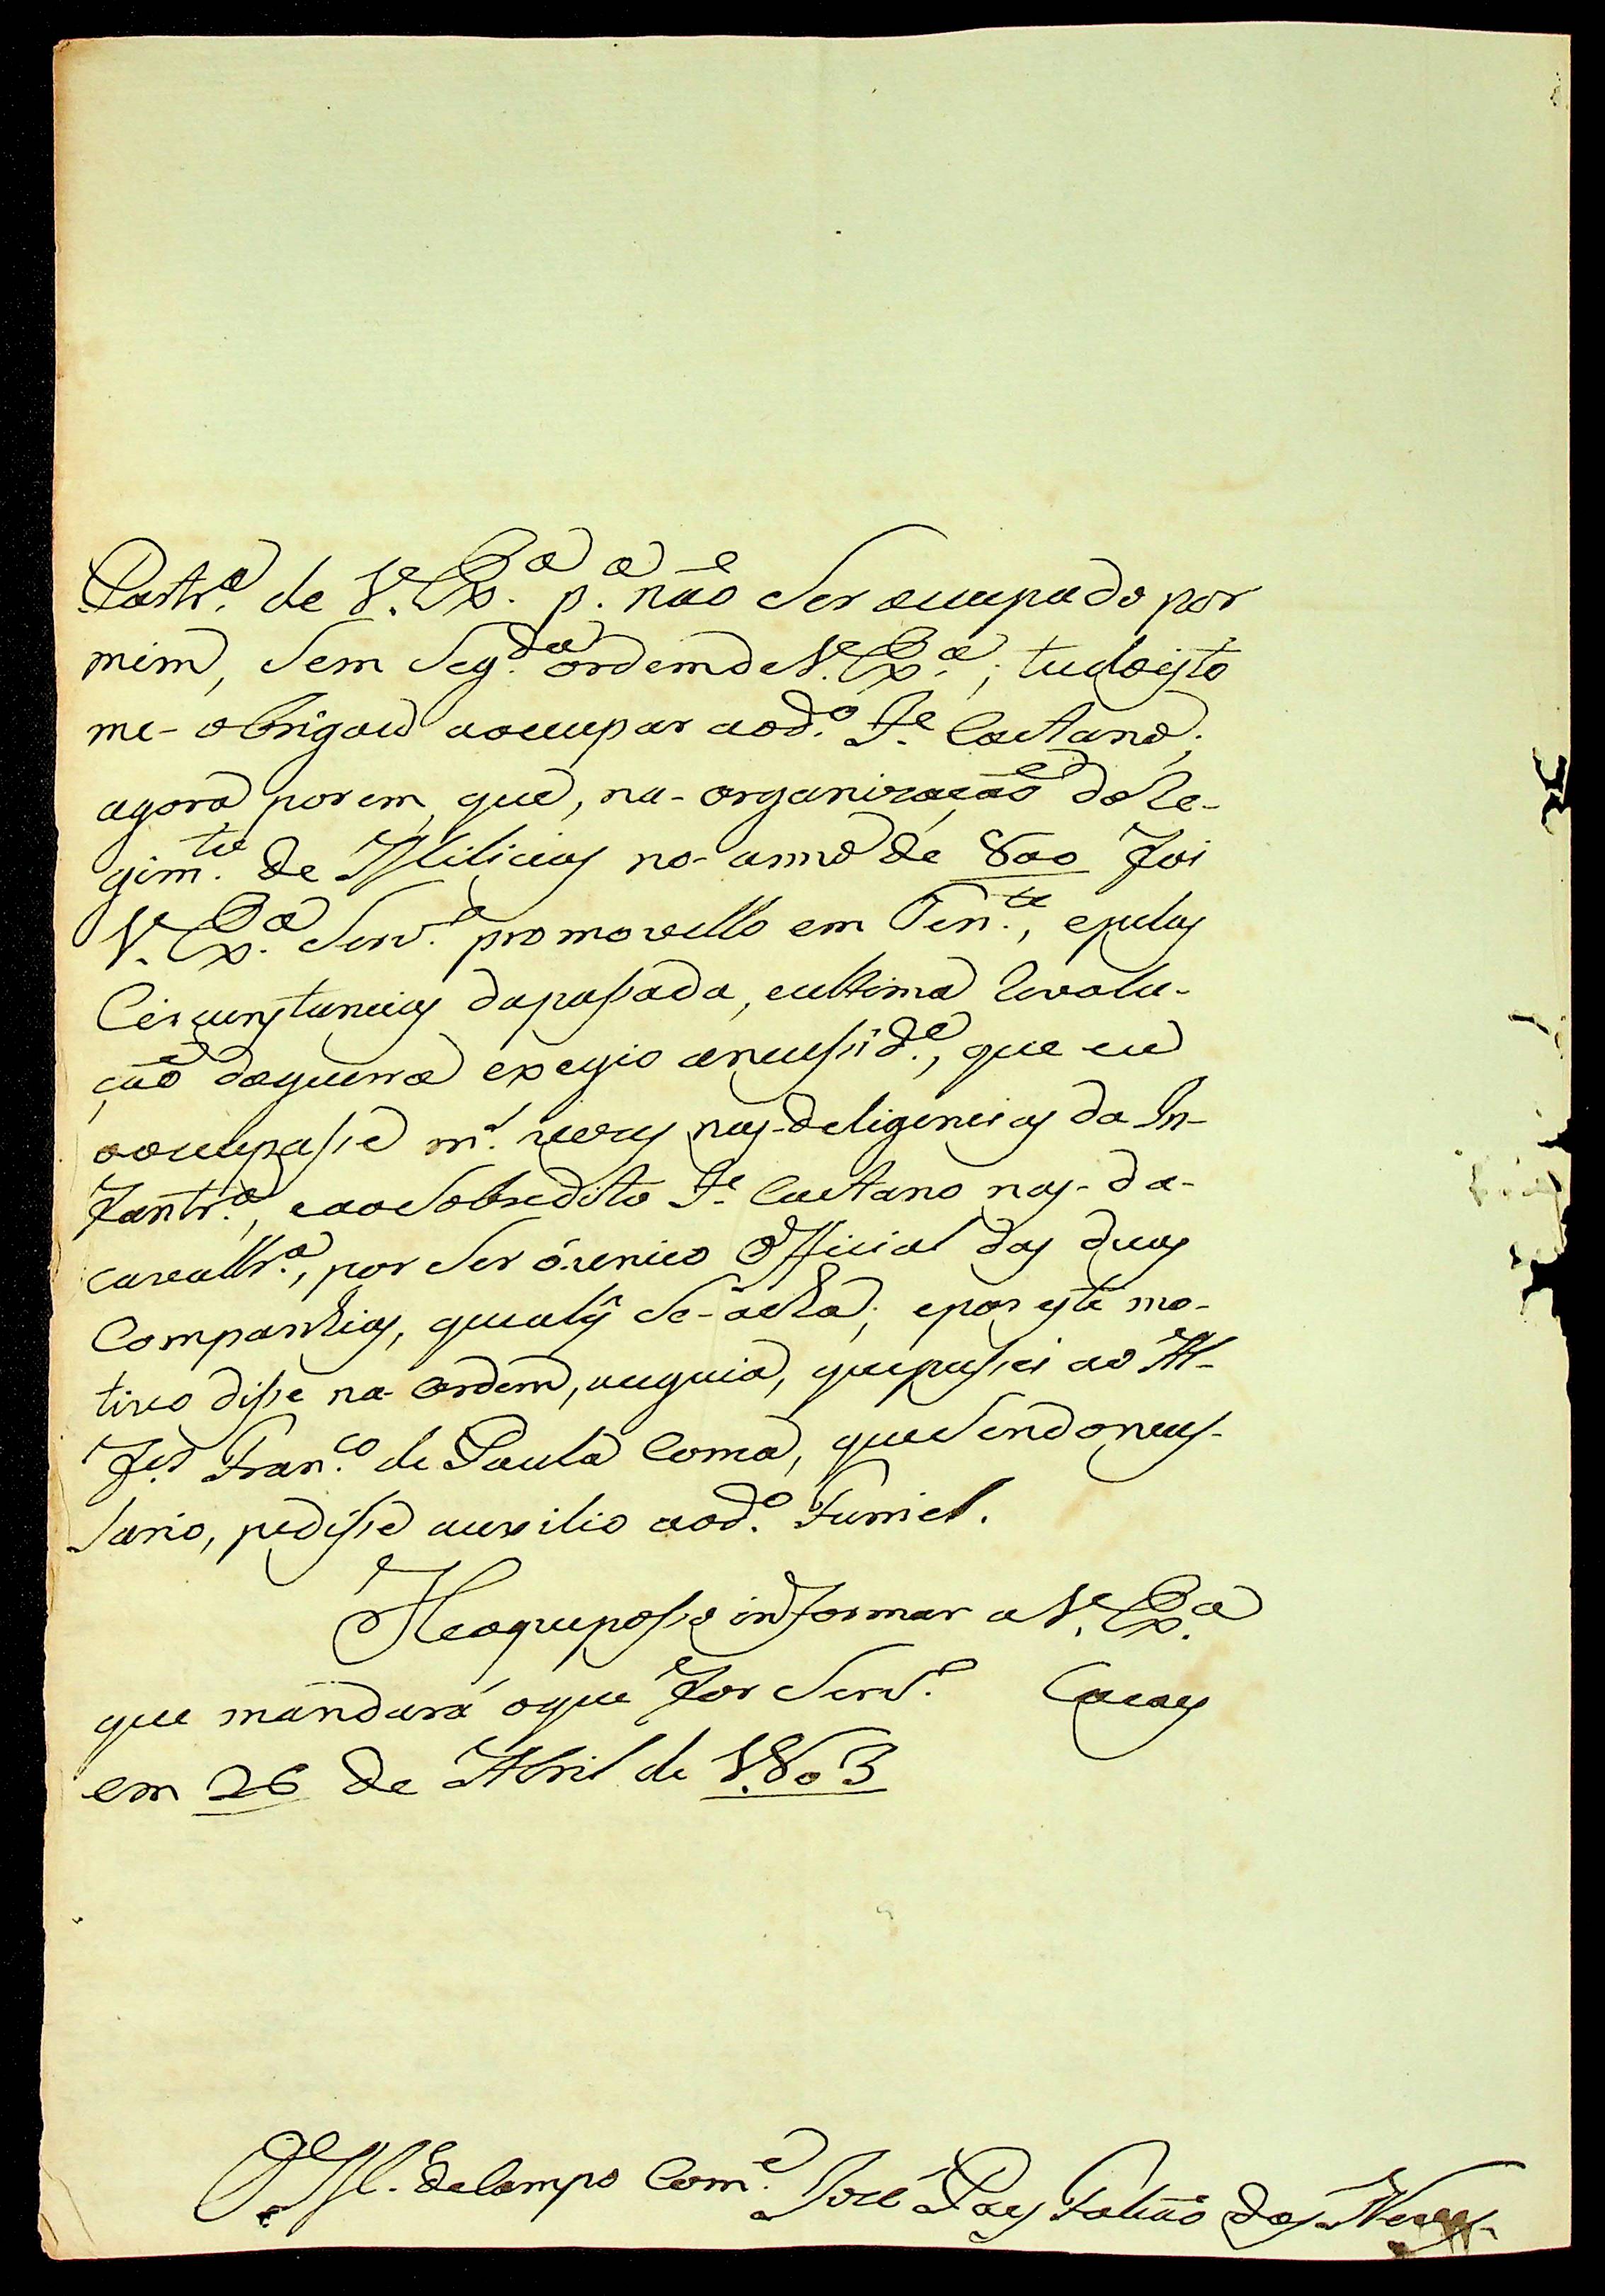 Portr.ª de V. Ex.ª p.ª não ser ocupado por
mim, sem seg.da ordem de V. Ex.ª; tudo isto
me-obrigou aocupar aod.º Je. Caetano;
agora porem, que, na-organizaçaõ do Re-
gim.to de Milicias no-anno de 800 foi
V. Ex.ª Serv.º promovello em Ten.te, epelas
Circunstancias dapasada, eultima Revolu-
çaõ daguerra exegio anecesíd.e, que eu
ocupase m.s vezes nas-deligencias da In-
fantr.ª, eaosobredito Je. Caetano nas-da-
cavallr.ª, por ser ó-unico Official das duas
Companhias, quealy se-acha; epor este mo-
tivo dise na-ordem, ouguia, quepasei ao Al-
f.es Fran.co de Paula Correa, quesendoneces-
sario, pedise auxilio aod.º Furriel.
He oqueposso informar a V. Ex.ª
que mandará oque for Serv.º Caxias
em 26 de Abril de 1803
O M.e de Campo Com.e José Paes Falcaõ das Neves